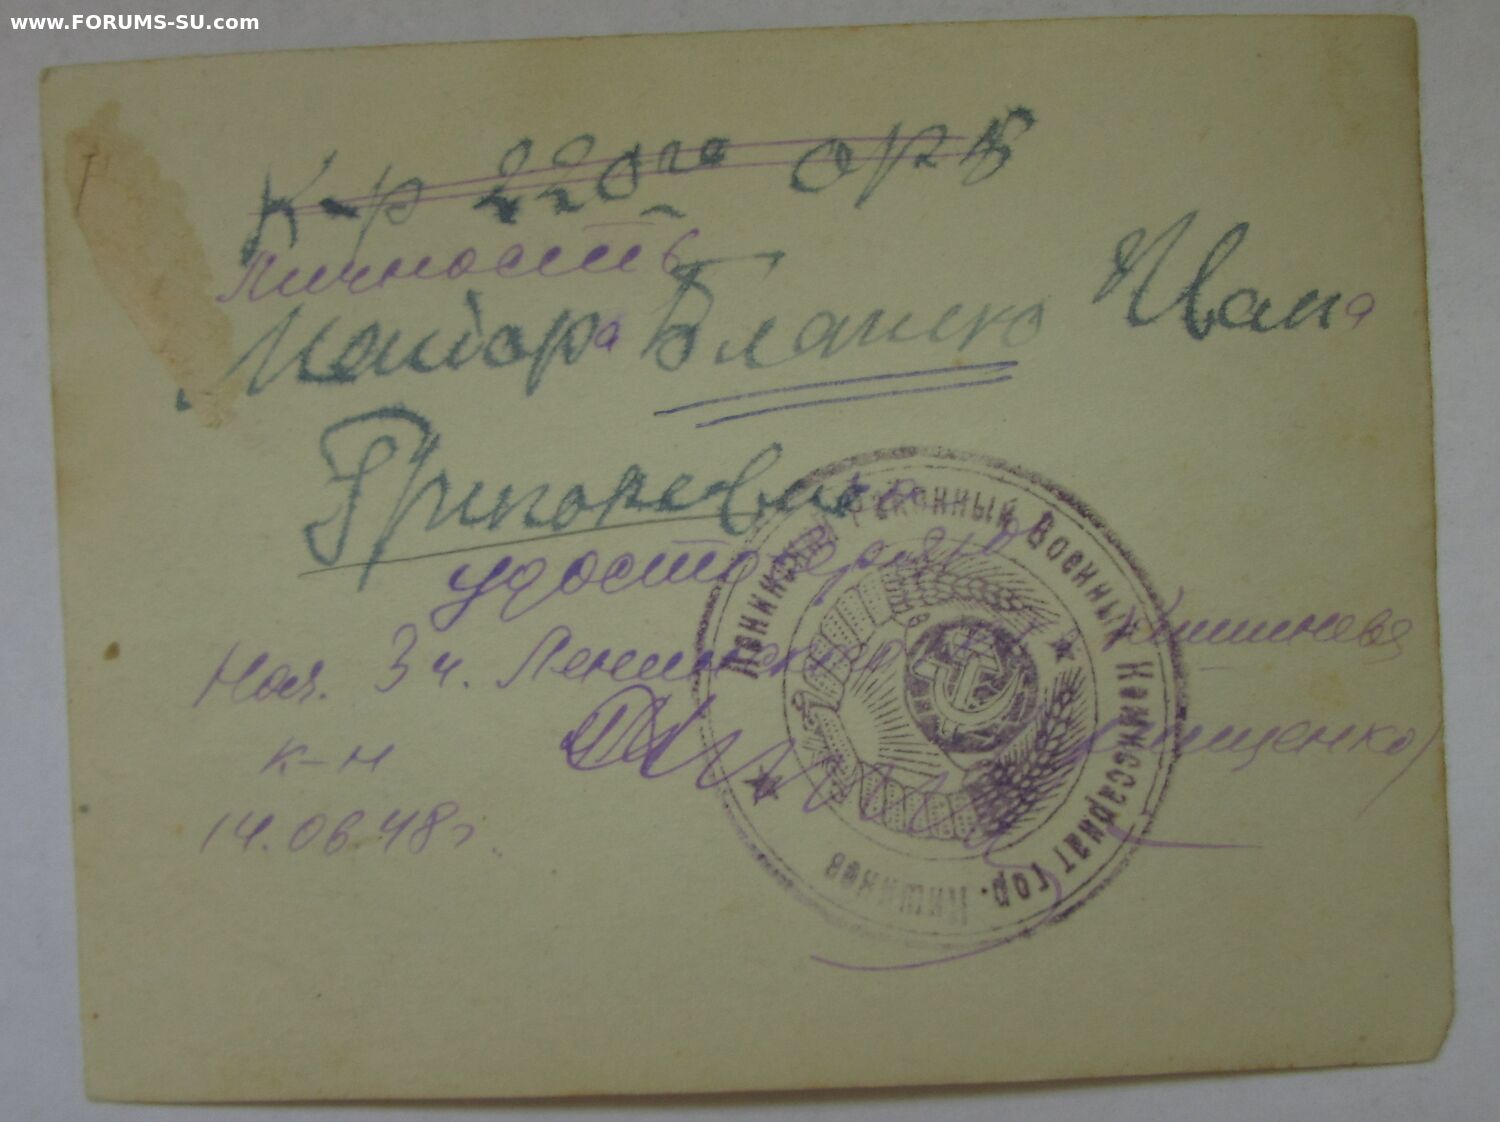 www.FORUMS-SU.com
К-р 220го орв
личность
Майора Бланко Ивана
Григоревича
удостоверяю
Нач. 3 ч. Ленинского Кишинева
к-н
14.06.48г.
Ленинский Районный Военный Комиссариат гор. Кишинев